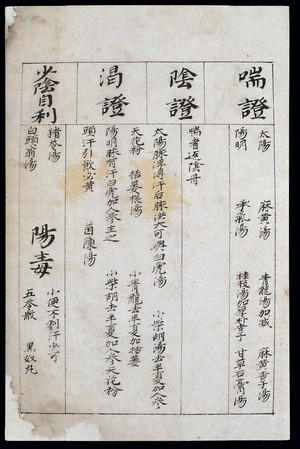 喘證
太陽 麻黃湯 青龍湯加減 麻黃杏子湯
陽明 承氣湯 桂枝湯加厚朴杏子 甘草石膏湯
陰證
喘者
渴證
太陽脉浮浮汗后脉洪大可與白虎湯 小柴胡湯去半夏加人參
天花粉 括蔞根湯 小青龍去半夏加括蔞
陽明脉 有汗白虎加人參主之 小柴胡去半夏加人參天花粉
頭汗引飲必黃 茵陳湯
少陰自利
猪苓湯
白頭翁湯
陽毒
小便不利汗少可
五苓散 黑奴丸